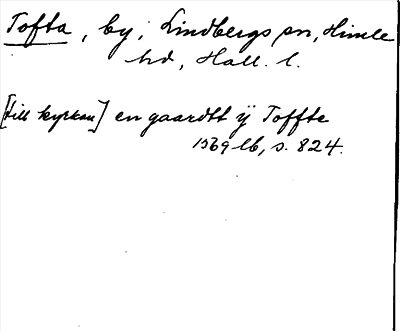 Tofta, by, Lindbergs sn, Himle
hd, Hall. l.
[till kyrkan] en gaardtt ÿ Toffte
1569 lb, s. 824.